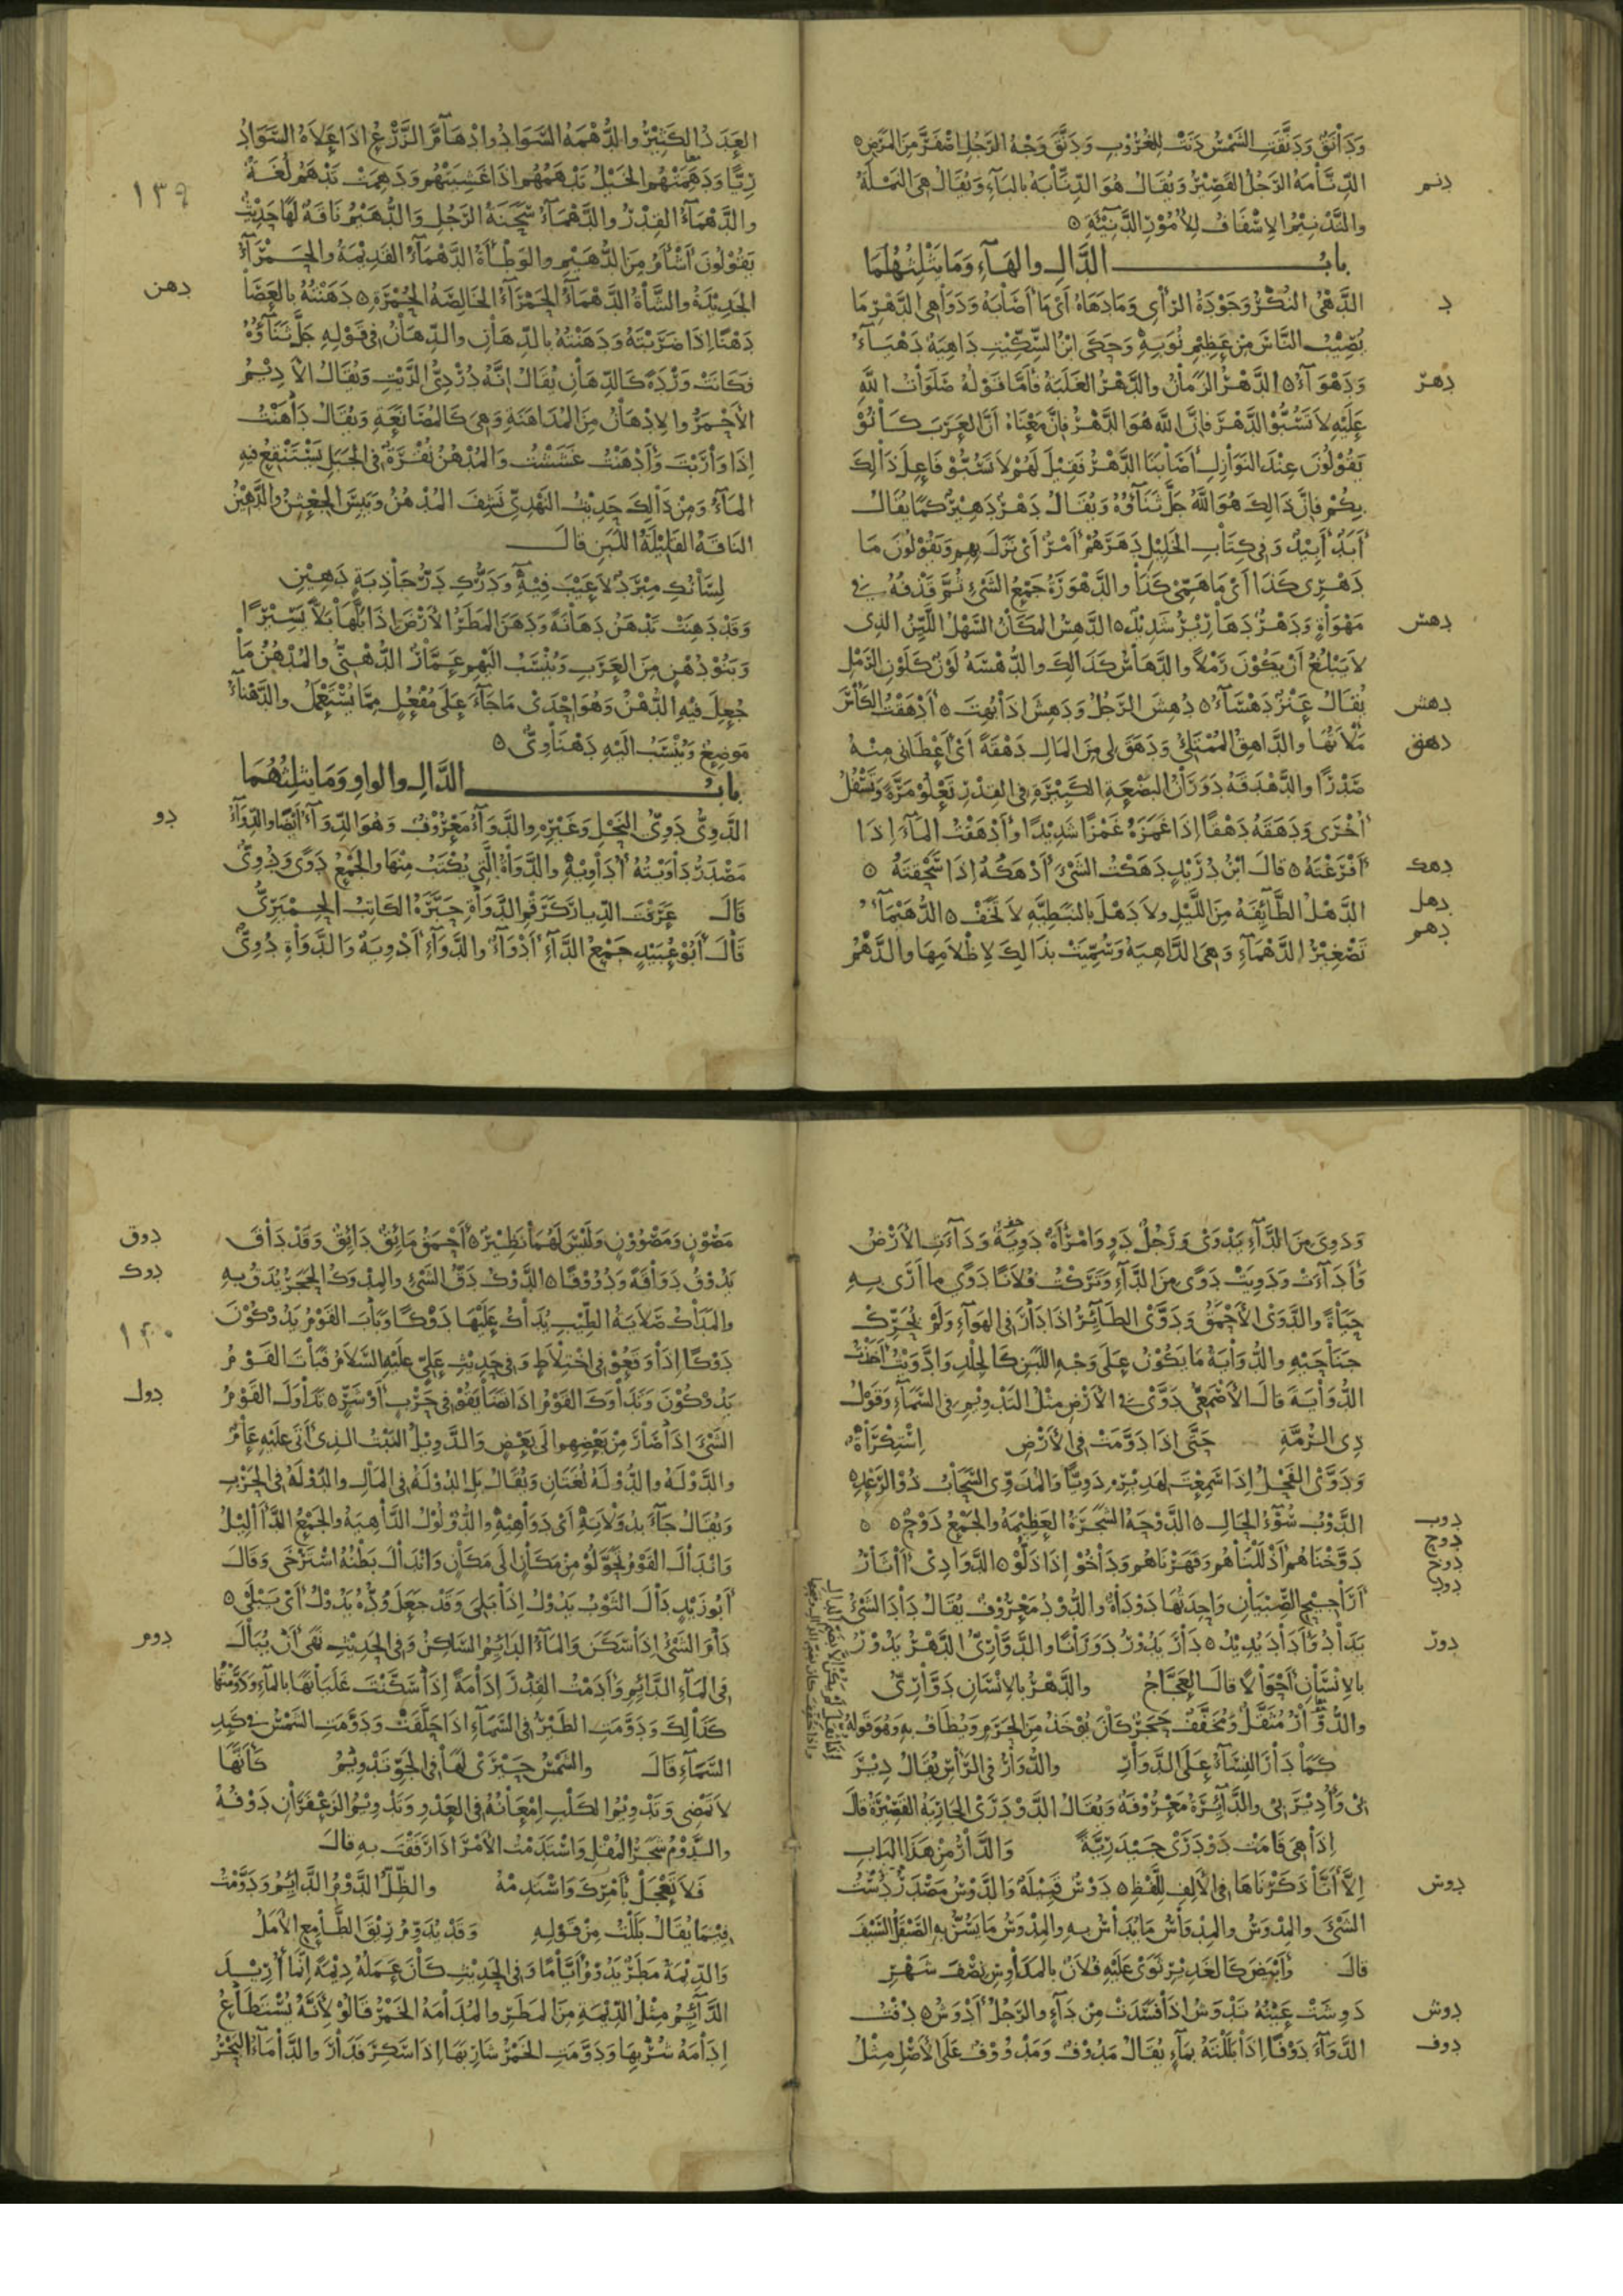 ودانق ودنقت الشمس دنت للغروب ودنق وجه الرجل اصفر من المرض
دنم
الدنامة الرجل القصير ويقال هو الدنابة بالباء ويقال هي النملة
والتدنيم الاسفاف للامور الدنيئة
باب الدال والهاء وما يثلثهما
د
الدهي النكر وجودة الرأي وما دهاه اي ما اصابه ودواهي الدهر ما
يصيب الناس من عظيم نوبه وحكى ابن السكيت داهية دهياء
دهر
ودهواء الدهر الزمان والدهر الغلبة فاما قوله صلوات الله
عليه لا تسبوا الدهر فان الله هو الدهر فان معناه ان العرب كانو
يقولون عند النوازل اصابنا الدهر فقيل لهم لا تسبو فاعل ذالك
بكم فان ذالك هو الله جل ثناؤه ويقال دهر دهير كما يقال
ابد ابيد وفي كتاب الخليل دهرهم امر اي نزل بهم ويقولون ما
دهري كذا اي ما همي كذا والدهورة جمع الشيء ثم قذفه في
دهس
مهواة ودهر دهارير شديد الدهس المكان السهل اللين الذي
لا يبلغ ان يكون رملا والدهاس كذالك والدهسة لون كلون الرمل
دهش
يقال عنز دهساء دهش الرجل ودهش اذا بهت ادهقت الكأس
دهق
ملاتها والداهق الممتلئ ودهق لي من المال دهقة اي اعطاني منه
صدرا والدهدقة دوران البضعة الكبيرة في القدر تعلو مرة وتسفل
اخرى ودهقه دهقا اذا غمزه غمزا شديدا وادهقت الماء اذا
دهك
افرغته قال ابن دريد دهكت الشيء ادهكه اذا سحقته
دهل
الدهل الطائفة من الليل ولا دهل بالنبطية لا تخف الدهيماء
دهم
تصغير الدهماء وهي الداهية وسميت بذالك لاظلامها والدهم
١٣٩
العدد الكثير والدهمة السواد وادهام الزرع اذا علاه السواد
ريا ودهمتهم الخيل تدهمهم اذا غشيتهم ودهمت تدهم لغة
والدهماء القدر والدهماء سحنة الرجل والدهيم ناقة لها حديث
يقولون اشأم من الدهيم والوطأة الدهماء القديمة والحمراء
دهن
الجديدة والشاة الدهماء الحمراء الخالصة الحمرة دهنته بالعصا
دهنا اذا ضربته ودهنته بالدهان والدهان في قوله جل ثناؤه
فكانت وردة كالدهان يقال انه دردي الزيت ويقال الاديم
الاحمر والادهان من المداهنة وهي كالمصانعة ويقال داهنت
اذا واربت وادهنت غششت والمدهن نقرة في الجبل يستنقع فيه
الماء ومن ذالك حديث النهدي نشف المدهن ويبس الجعثن والدهين
الناقة القليلة اللبن قال
لسانك مبرد لا عيب فيه ودرك در جاذبة دهين
وقد دهنت تدهن دهانة ودهن المطر الارض اذا بلها بلا يسيرا
وبنو دهن من العرب وينسب اليهم عمار الدهني والمدهن ما
جعل فيه الدهن وهو احدى ما جاء على مفعل مما يستعمل والدهناء
موضع وينسب اليه دهناوي
باب الدال والواو وما يثلثهما
دو
الدوي دوي النحل وغيره والدواء معروف وهو الدواء ايضا والدواء
مصدر داويته اداويه والدواة التي يكتب منها والجمع دوى ودوي
قال عرفت الديار كرقم الدواة حبره الكاتب الحميري
قال ابو عبيد جمع الداء ادواء والدواء ادوية والدواة دوي
ودوي من الداء يدوى ورجل دو وامرأة دوية وداءت الارض
واداءت ودويت دوى من الداء وتركت فلانا دوى ما ارى به
حياة والدوى الاحمق ودوى الطائر اذا دار في الهواء ولم يحرك
جناحيه والدواية ما يكون على وجه اللبن كالجلد وادويت اخذت
الدواية قال الاصمعي دوى في الارض مثل التدويم في السماء وقول
ذي الرمة حتى اذا دومت في الارض استكراه
ودوى الفحل اذا سمعت لهديره دويا والمدوي السحاب ذو الرعد
دوب
دوح
الدوب سوء الحال الدوحة الشجرة العظيمة والجمع دوح
دوخ
دوخناهم اذللناهم وقهرناهم وداخو اذا ذلو الدوادي اثار
دود
اراجيح الصبيان واحدتها دوداة والدود معروف يقال داد الشيء
دور
يداد واداد يديد دار يدور دورانا والدواري الدهر يدور
بالانسان احوالا قال العجاج والدهر بالانسان دواري
والدوار مثقل ومخفف حجر كان يؤخذ من الحرم ويطاف به وهو قوله
كما دار النساء على الدوار والدوار في الرأس يقال دير
بي وادير بي والدائرة معروفة ويقال الدودرى الجارية القصيرة قال
اذا هي قامت دودرى جيدرية والدار من هذا الباب
دوس
الا انا ذكرناها في الالف للفظ دوس قبيلة والدوس مصدر دست
الشيء والمدوس والمدواس ما يداس به والمدوس ما يسن به الصيقل السيف
قال وابيض كالغدير ثوى عليه فلان بالمداوس نصف شهر
دوش
دوشت عينه تدوش اذا فسدت من داء والرجل ادوش دفت
دوف
الدواء دوفا اذا بللته بماء يقال مدوف ومدووف على الاصل مثل
دوق
مصون ومصوون وليس لهما نظير احمق مائق دائق وقد داق
دوك
يدوق دواقة ودووقا الدوك دق الشيء والمدوك الحجر يدق به
١٤٠
والمداك صلاية الطيب يداك عليها دوكا وبات القوم يدوكون
دوكا اذا وقعو في اختلاط وفي حديث علي عليه السلام فبات القوم
دول
يدوكون وتداوك القوم اذا تضايقو في حرب او شر تداول القوم
الشيء اذا صار من بعضهم الى بعض والدويل النبت الذي اتى عليه عام
والدولة والدولة لغتان ويقال بل الدولة في المال والدولة في الحرب
ويقال جاء بدولاته اي دواهيه والدؤلول الداهية والجمع الداليل
واندال القوم تحولو من مكان الى مكان واندال بطنه استرخى وقال
ابو زيد دال الثوب يدول اذا بلي وقد جعل وده يدول اي يبلى
دوم
دام الشيء اذا سكن والماء الدائم الساكن وفي الحديث نهى ان يبال
في الماء الدائم وادمت القدر ادامة اذا سكنت غليانها بالماء ودومتها
كذالك ودومت الطير في السماء اذا حلقت ودومت الشمس في كبد
السماء قال والشمس حيرى لها في الجو تدويم كانها
لا تمضي وتدويم الكلب امعانه في العدو وتدويم الزعفران دوفه
والدوم شجر المقل واستدمت الامر اذا رفقت به قال
فلا تعجل بامرك واستدمه والظل الدوم الدائم ودومت
فيما يقال بللت من قوله وقد يدوم ريق الطامع الامل
والديمة مطر يدوم اياما وفي الحديث كان عمله ديمة انما اريد
الدائم مثل الديمة من المطر والمدامة الخمر قالو لانه يستطاع
ادامة شربها ودومت الخمر شاربها اذا سكر فدار والداماء البحر